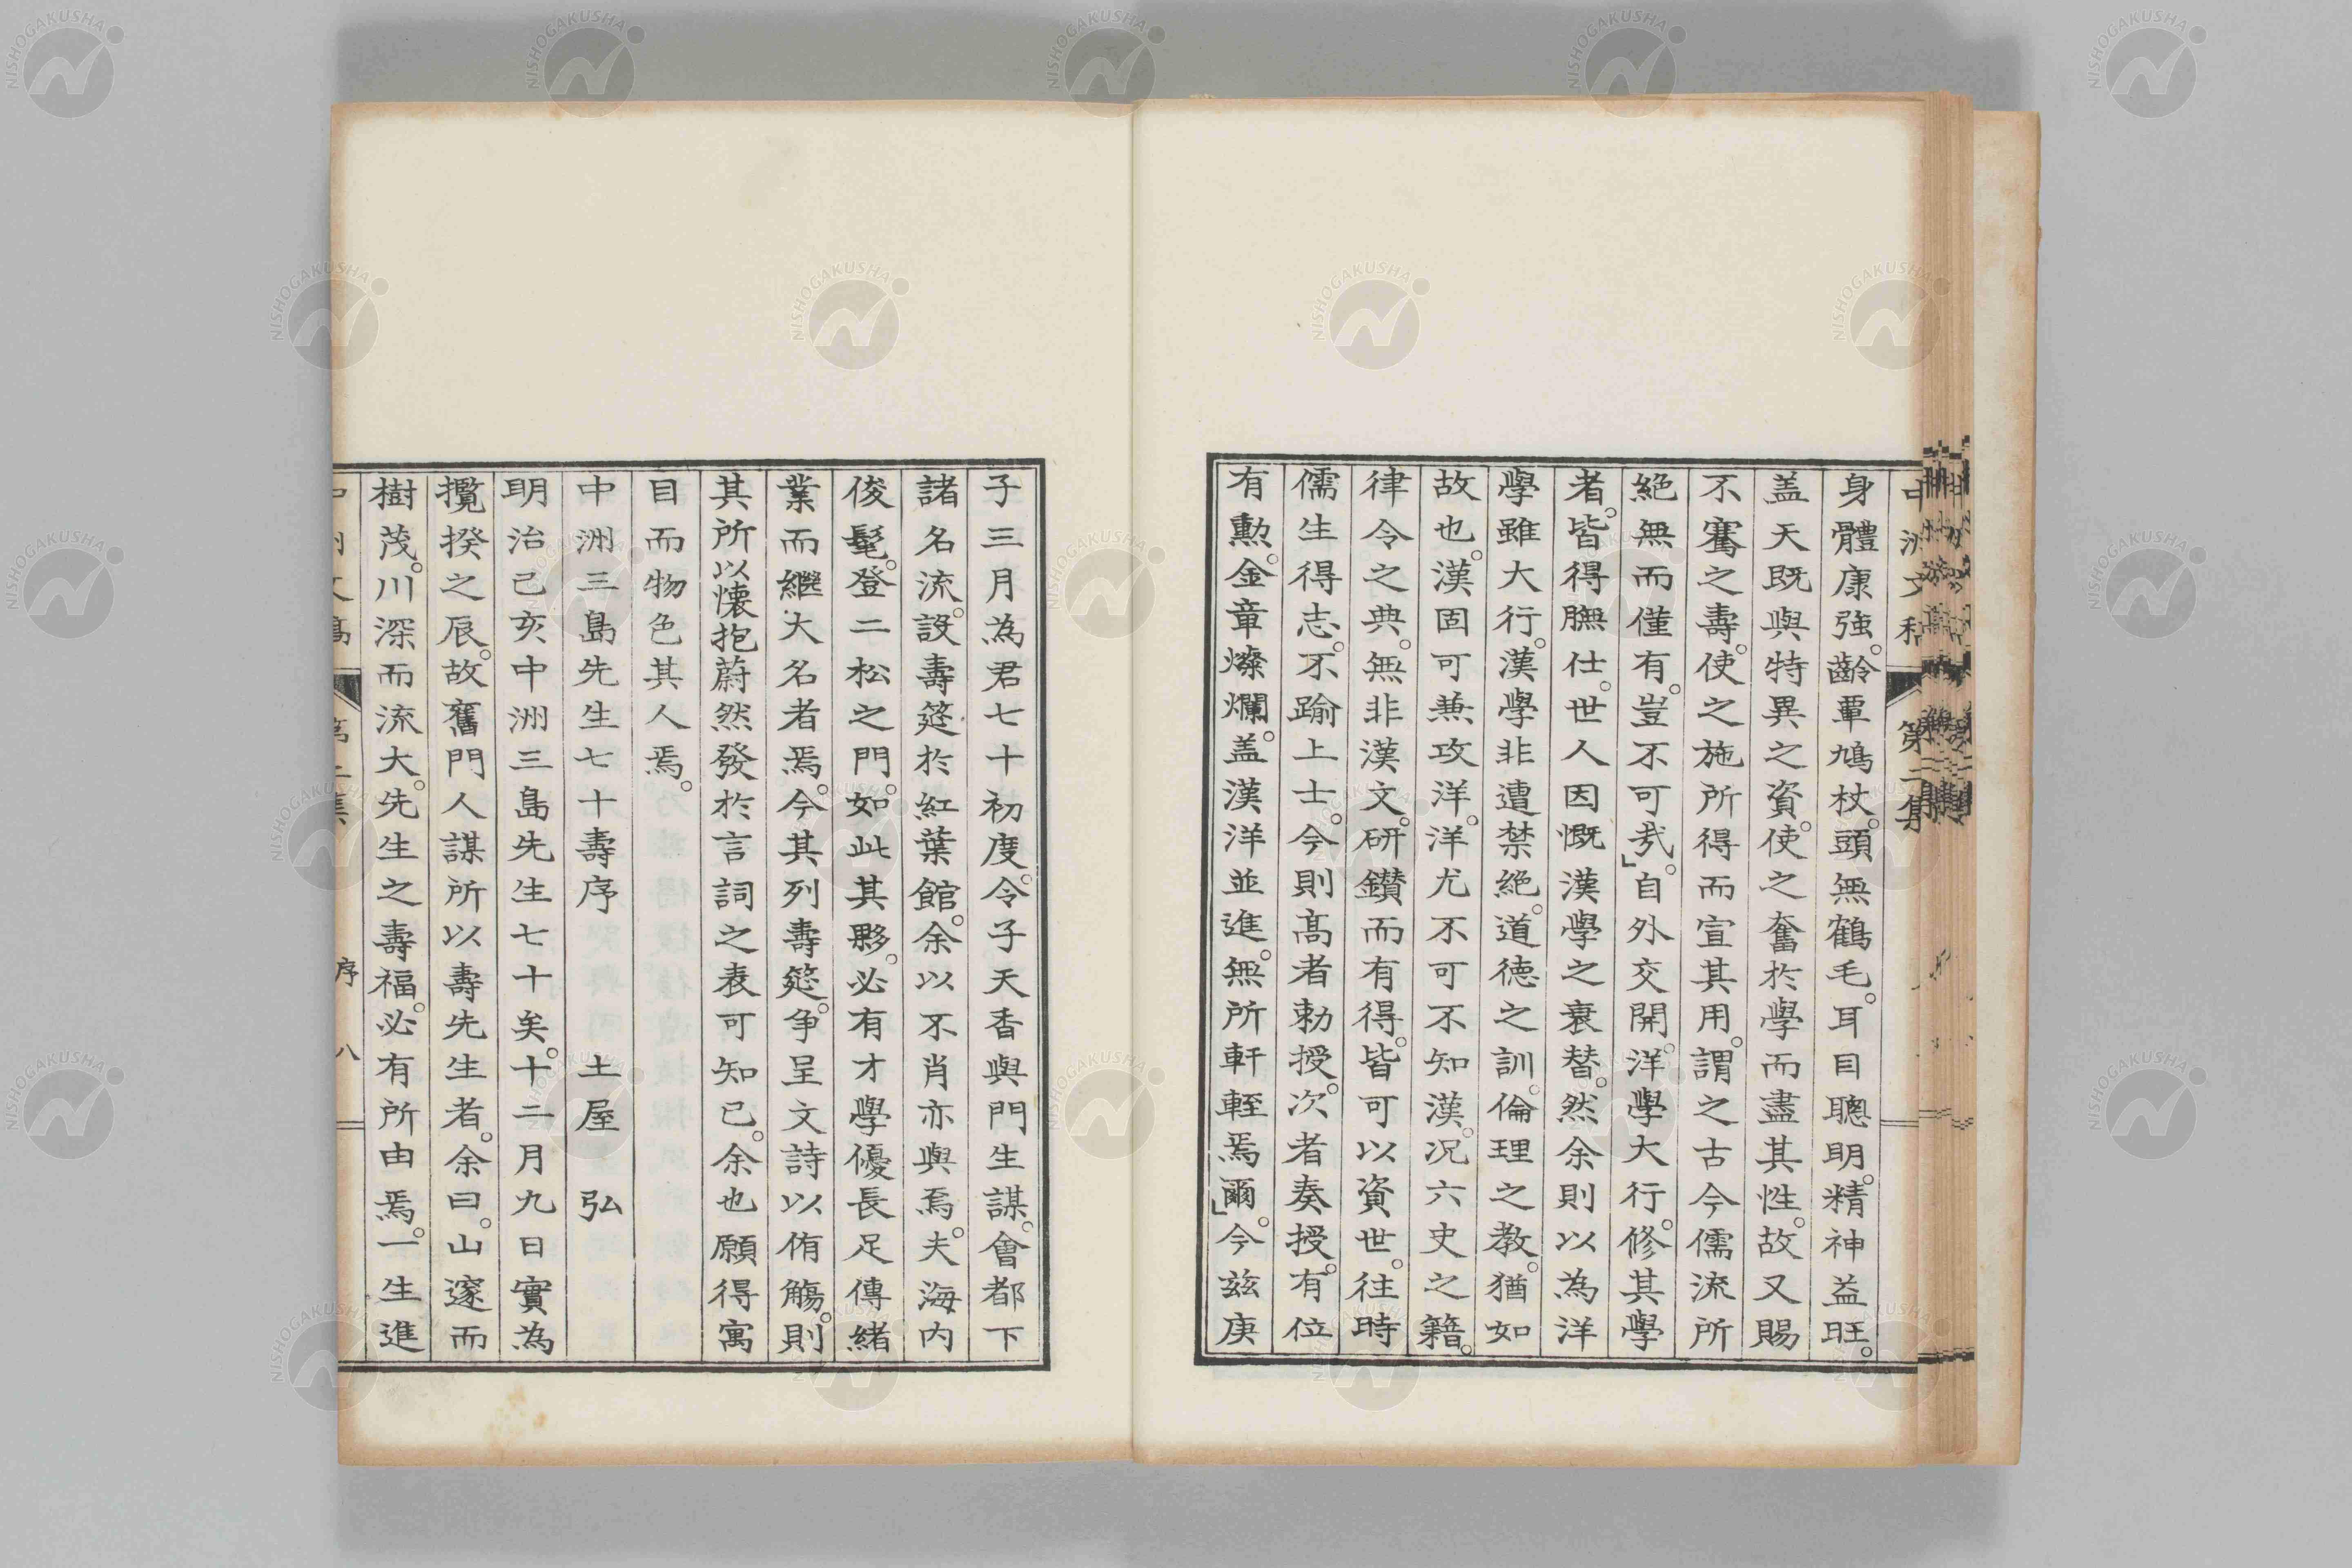 身體康強。齡覃鳩杖。頭無鶴毛。耳目聰明。精神益旺。
盖天既與特異之資。使之奮於學而盡其性。故又賜
不騫之壽。使之施所得而宣其用。謂之古今儒流所
絕無而僅有。豈不可哉。」自外交開。洋學大行。修其學
者。皆得膴仕。世人因慨漢學之衰替。然余則以為洋
學雖大行。漢學非遭禁絕。道德之訓。倫理之教。猶如
故也。漢固可兼攻洋。洋尤不可不知漢。况六史之籍。
律令之典。無非漢文。研鑽而有得。皆可以資世。往時
儒生得志。不踰上士。今則高者勅授。次者奏授。有位
有勳。金章燦爛。盖漢洋並進。無所軒輊焉爾。」今茲庚
子三月為君七十初度。令子天香與門生謀。會都下
諸名流。設壽筵於紅葉館。余以不肖亦與焉。夫海內
俊髦。登二松之門。如此其夥。必有才學優長足傳緒
業而繼大名者焉。今其列壽筵。爭呈文詩以侑觴。則
其所以懷抱蔚然發於言詞之表可知已。余也願得寓
目而物色其人焉。
中洲三島先生七十壽序 土屋 弘
明治己亥中洲三島先生七十矣。十二月九日實為
攬揆之辰。故舊門人謀所以壽先生者。余曰。山邃而
樹茂。川深而流大。先生之壽福。必有所由焉。一生進
序 八